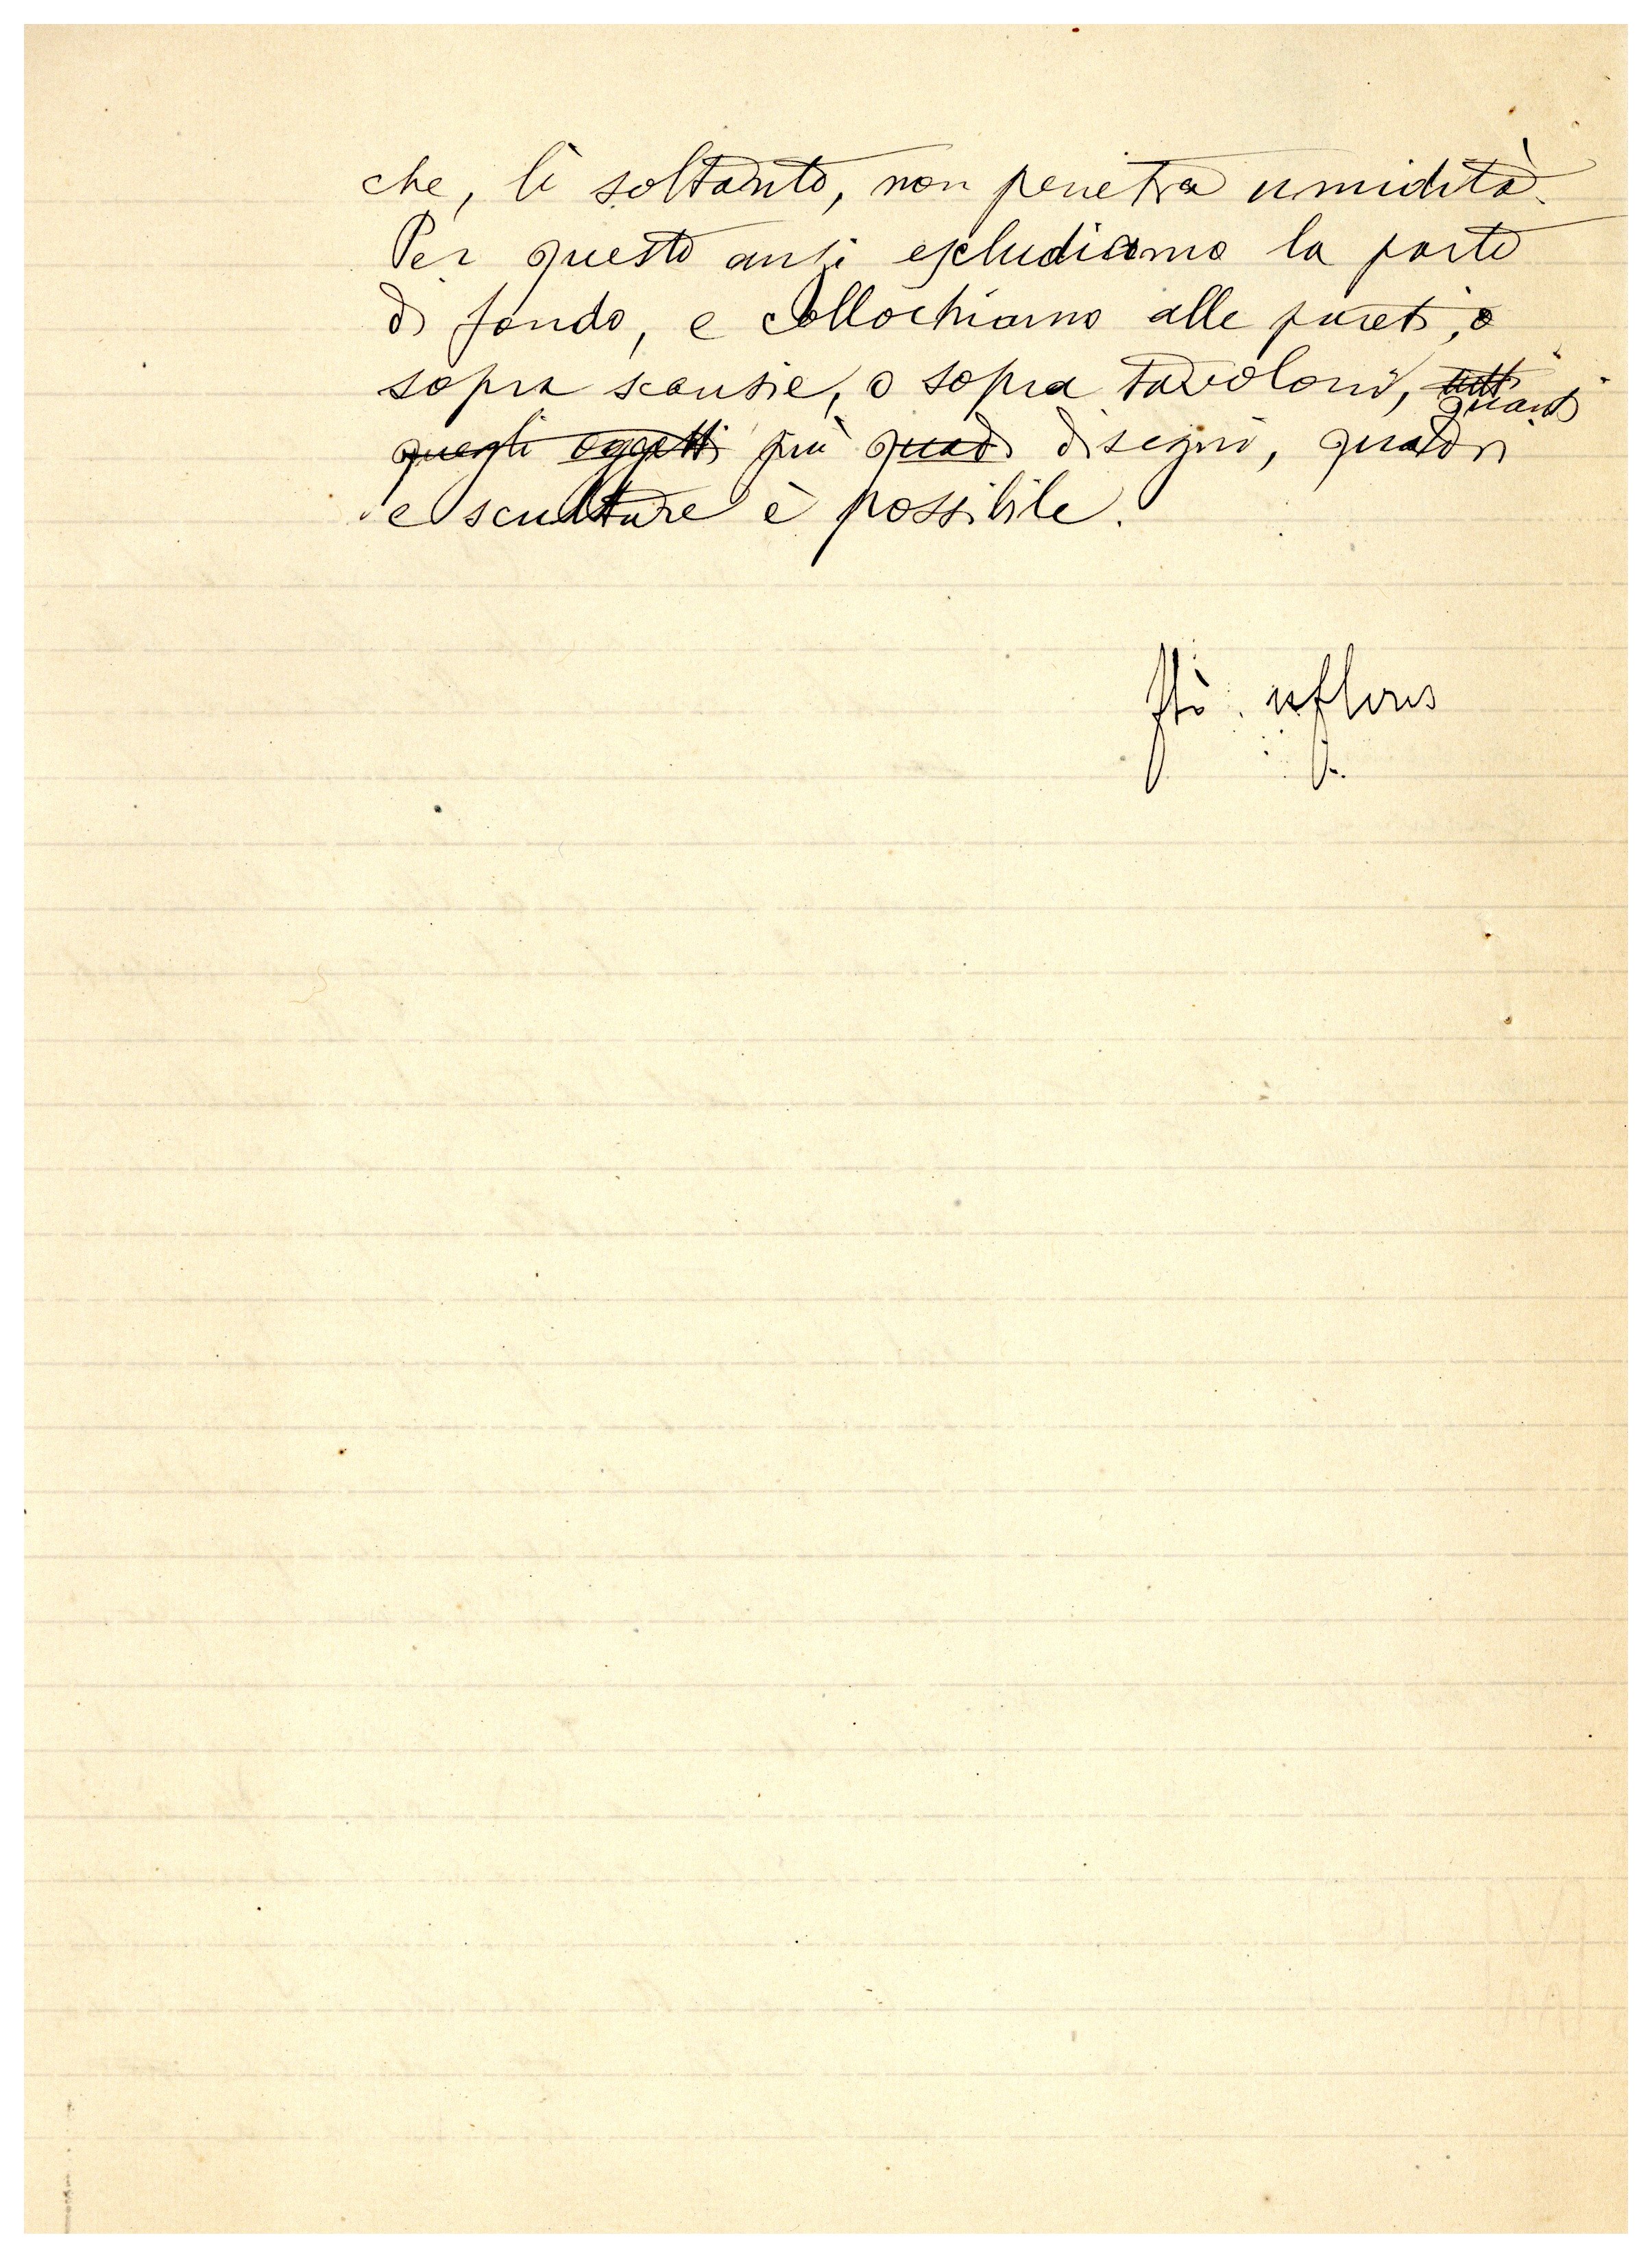 che, lì soltanto, non penetra umidità.
Per questo anzi escludiamo la parte
di fondo, e collochiamo alle pareti, o
sopra scansie, o sopra tavoloni, tutti quanti
quegli oggetti più quadi disegni, quadri
e sculture è possibile.